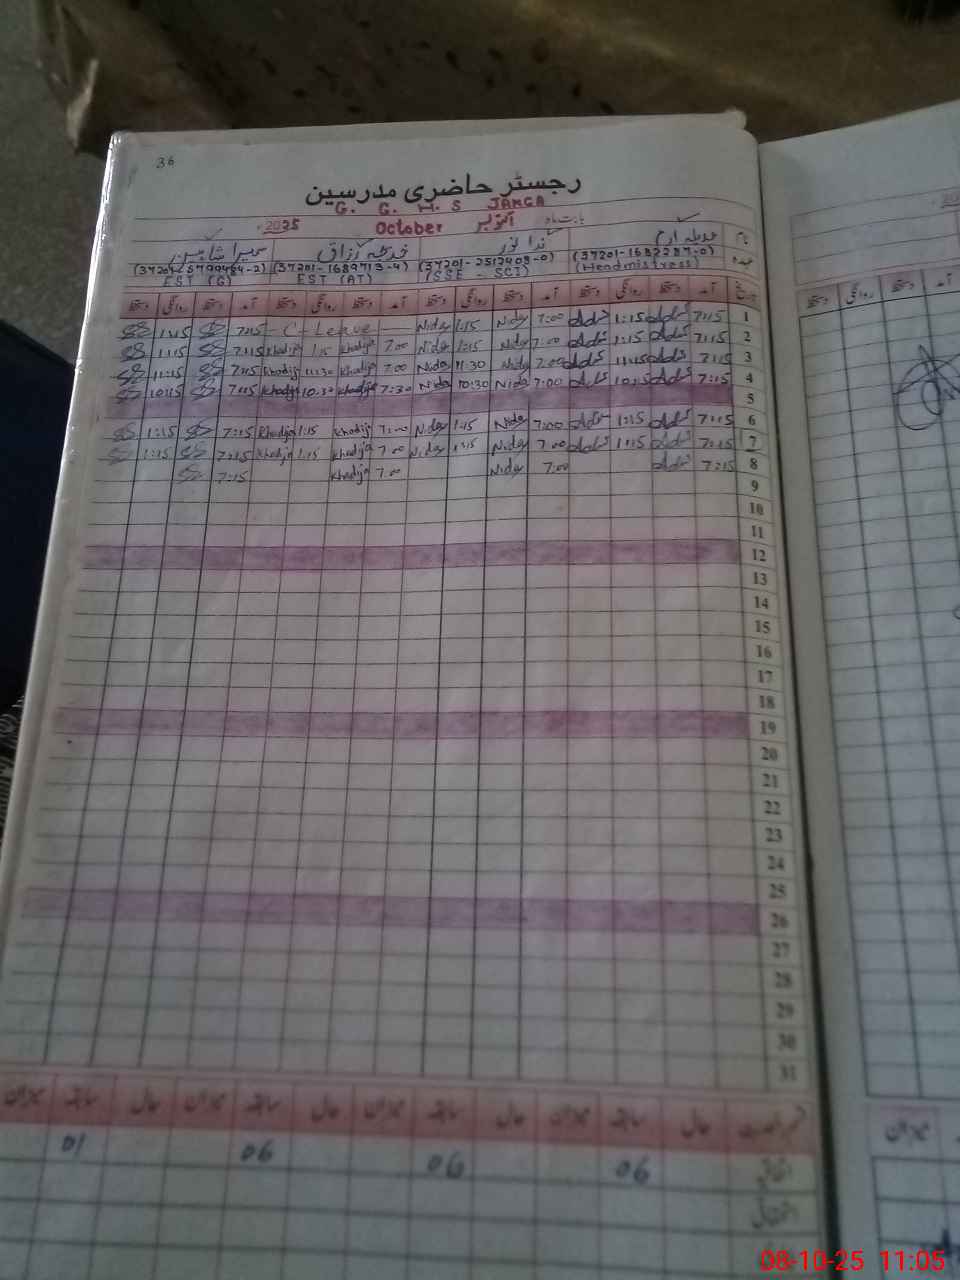 36
رجسٹر حاضری مدرسین
G. G. H. S JANGA
بابت ماہ اکتوبر October 2025
نام ندا نور خدیجہ رزاق سمیرا شاہین
عہدہ (37201-1682287-0) (37201-2512408-0) (37201-1689713-4)
(Headmistress) (SSE - SCI) EST (AT) EST (G)
تاریخ آمد دستخط روانگی دستخط آمد دستخط روانگی دستخط آمد دستخط روانگی دستخط آمد دستخط روانگی دستخط
1 7:15 1:15 7:00 Nida 1:15 Nida - C - Leave - 7:15 1:15
2 7:15 1:15 7:00 Nida 1:15 Nida 7:00 Khadija 1:15 Khadija 7:15 1:15
3 7:15 11:15 7:00 Nida 11:30 Nida 7:00 Khadija 11:30 Khadija 7:15 11:15
4 7:15 10:15 7:00 Nida 10:30 Nida 7:30 Khadija 10:30 Khadija 7:15 10:15
5
6 7:15 1:15 7:00 Nida 1:15 Nida 7:00 Khadija 1:15 Khadija 7:15 1:15
7 7:15 1:15 7:00 Nida 1:15 Nida 7:00 Khadija 1:15 Khadija 7:15 1:15
8 7:15 7:00 Nida 7:00 Khadija 7:15
9
10
11
12
13
14
15
16
17
18
19
20
21
22
23
24
25
26
27
28
29
30
31
حال سابقہ میزان حال سابقہ میزان حال سابقہ میزان حال سابقہ میزان
اتفاقی 06 06 06 01
میزان
08-10-25 11:05